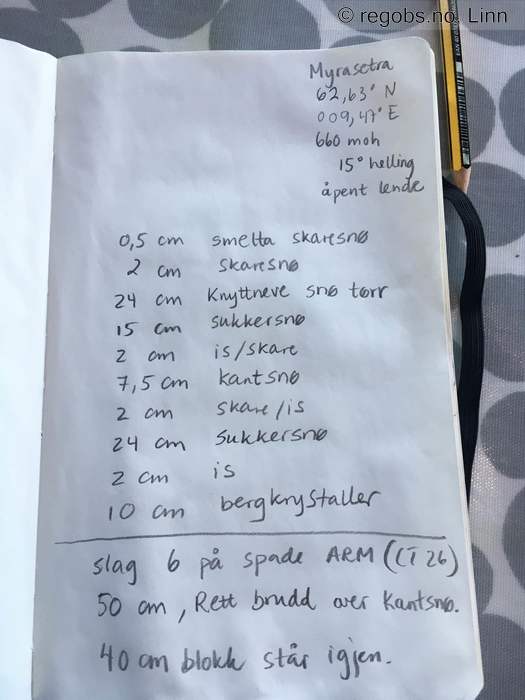 © regobs.no, Linn
Myrasetra
62,63° N
009,47° E
660 moh
15° helling
åpent lende
0,5 cm smelta skaresnø
2 cm skaresnø
24 cm Knyttneve snø tørr
15 cm sukkersnø
2 cm is/skare
7,5 cm kantsnø
2 cm skare/is
24 cm Sukkersnø
2 cm is
10 cm bergkrystaller
slag 6 på spade ARM (CT 26)
50 cm, Rett brudd over Kantsnø.
40 cm blokk står igjen.